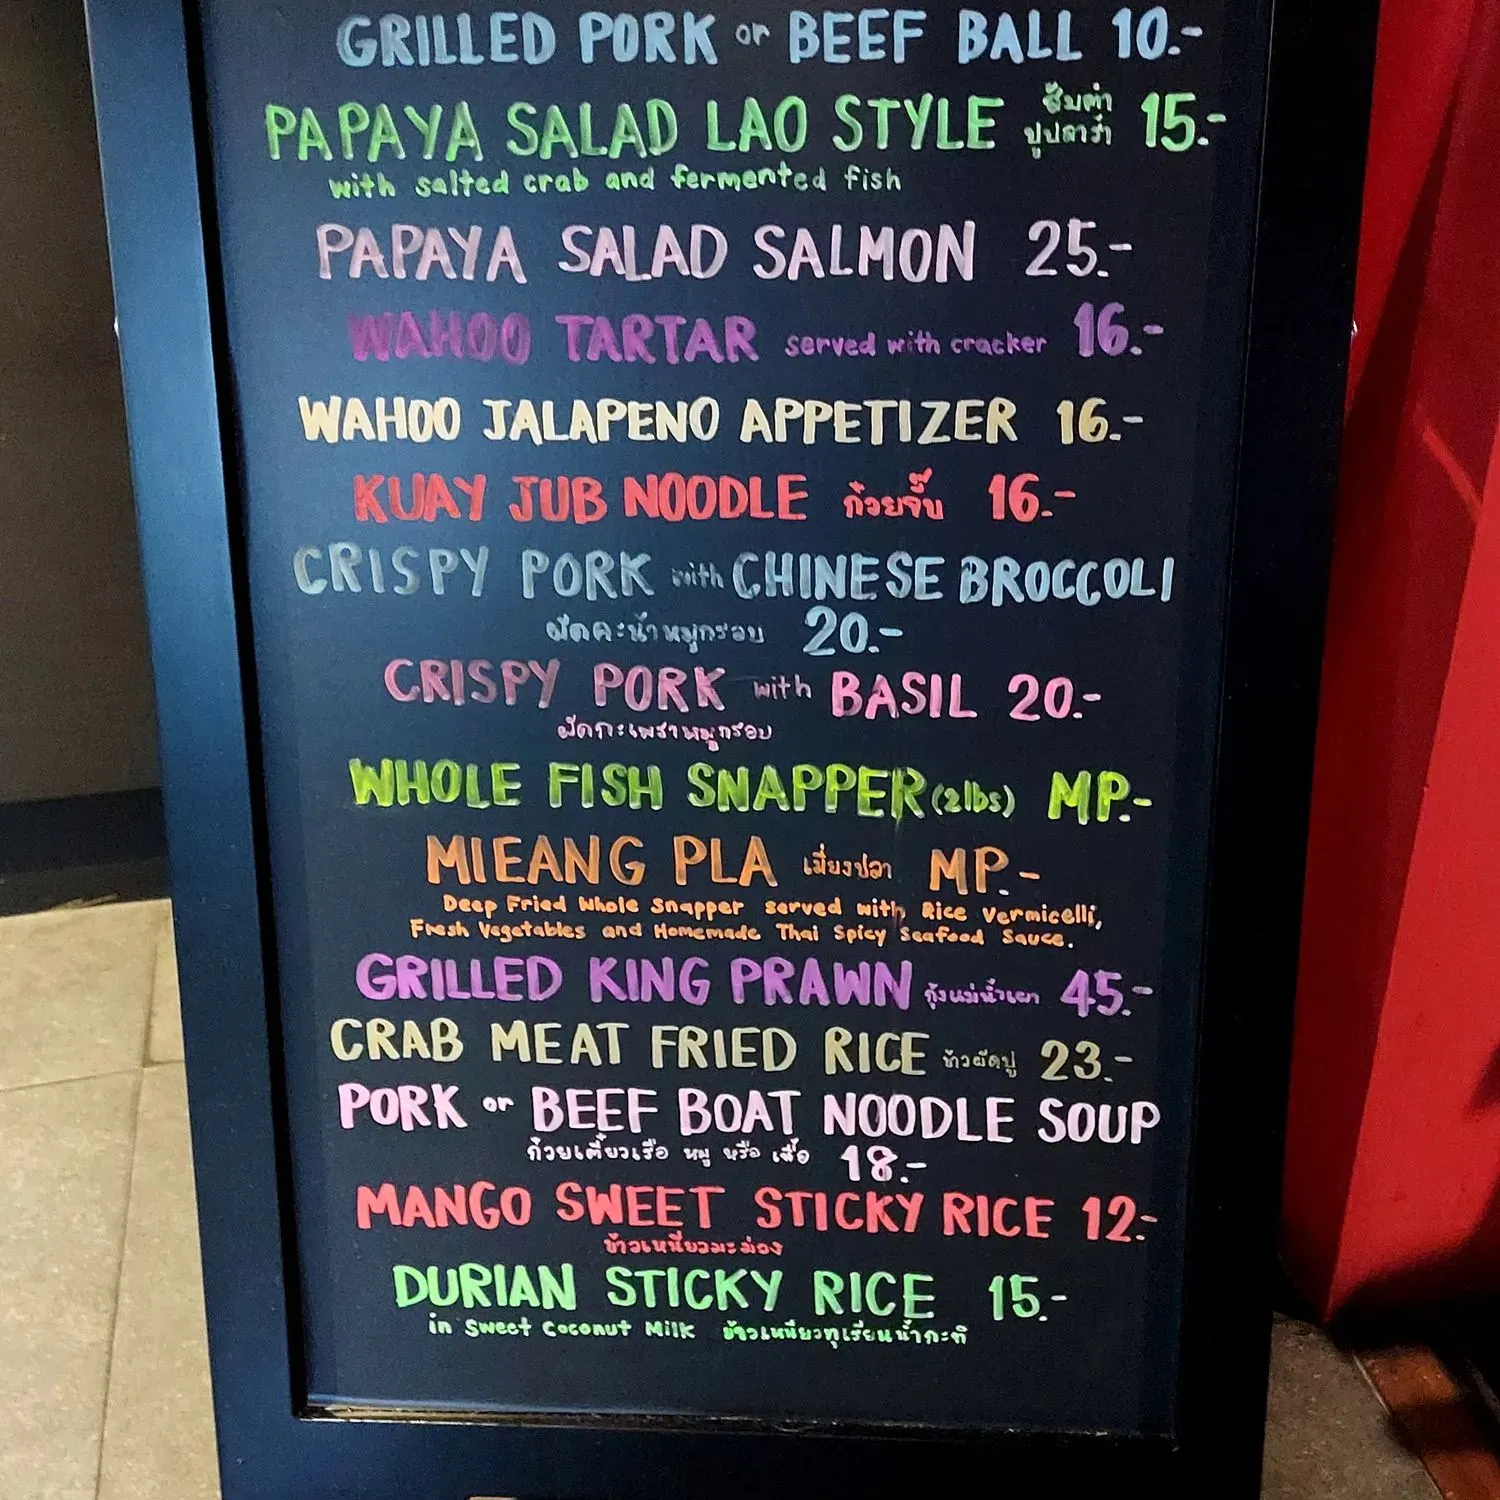 GRILLED PORK or BEEF BALL 10.-
PAPAYA SALAD LAO STYLE ส้มตำ 15.-
ปูปลาร้า
with salted crab and fermented fish
PAPAYA SALAD SALMON 25.-
WAHOO TARTAR served with cracker 16.-
WAHOO JALAPENO APPETIZER 16.-
KUAY JUB NOODLE ก๋วยจั๊บ 16.-
CRISPY PORK with CHINESE BROCCOLI
ผัดคะน้าหมูกรอบ 20.-
CRISPY PORK with BASIL 20.-
ผัดกะเพราหมูกรอบ
WHOLE FISH SNAPPER (2lbs) MP.-
MIEANG PLA เมี่ยงปลา MP.-
Deep Fried Whole Snapper served with Rice Vermicelli,
Fresh Vegetables and Homemade Thai Spicy Seafood Sauce.
GRILLED KING PRAWN กุ้งแม่น้ำเผา 45.-
CRAB MEAT FRIED RICE ข้าวผัดปู 23.-
PORK or BEEF BOAT NOODLE SOUP
ก๋วยเตี๋ยวเรือ หมู หรือ เนื้อ 18.-
MANGO SWEET STICKY RICE 12.-
ข้าวเหนียวมะม่วง
DURIAN STICKY RICE 15.-
in Sweet Coconut Milk ข้าวเหนียวทุเรียนน้ำกะทิ